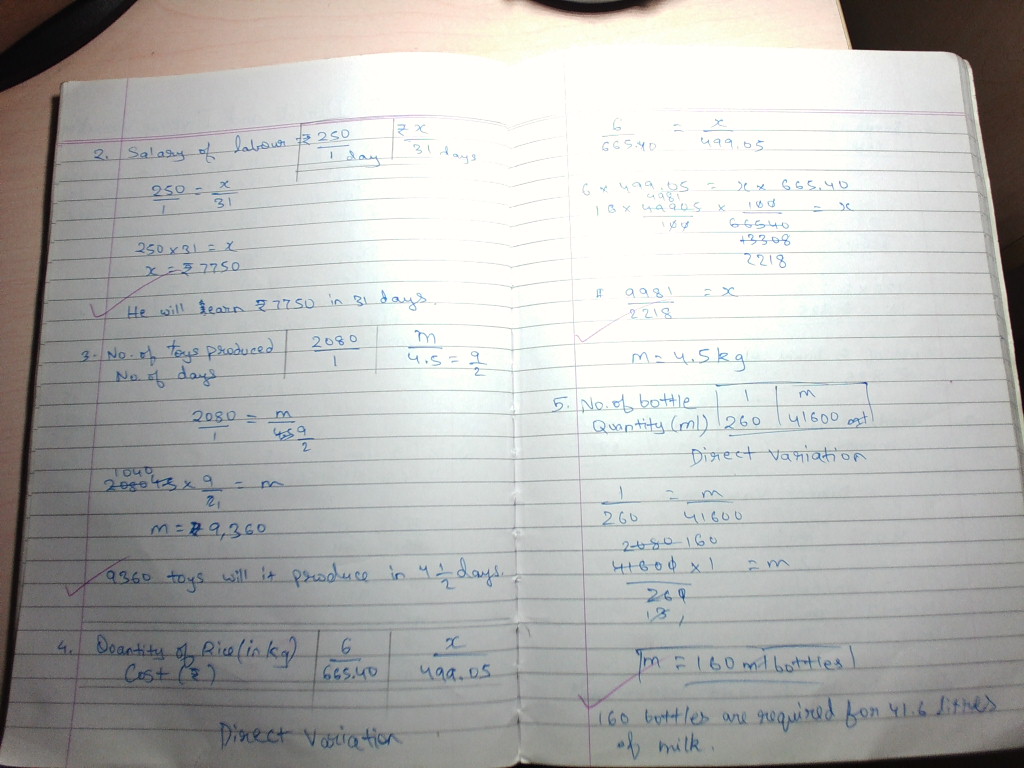 2. Salary of labour = ₹ 250 / 1 day | ₹ x / 31 days
250 / 1 = x / 31
250 × 31 = x
x = ₹ 7750
He will earn ₹ 7750 in 31 days.
3. No. of toys produced | 2080 | m
No. of days | 1 | 4.5 = 9/2
2080 / 1 = m / 4.5 9/2
1040
2080 × 9 / 2 = m
m = 9,360
9360 toys will it produce in 4 1/2 days.
4. Quantity of Rice (in kg) | 6 | x
Cost (₹) | 665.40 | 499.05
Direct Variation
6 / 665.40 = x / 499.05
6 × 499.05 = x × 665.40
9981
1 6 × 49905 / 100 × 100 / 66540 = x
13308
2218
9981 / 2218 = x
m = 4.5 kg
5. No. of bottle | 1 | m
Quantity (ml) | 260 | 41600
Direct Variation
1 / 260 = m / 41600
2080 160
41600 × 1 / 260 = m
13,
m = 160 ml bottles
160 bottles are required for 41.6 litres
of milk.